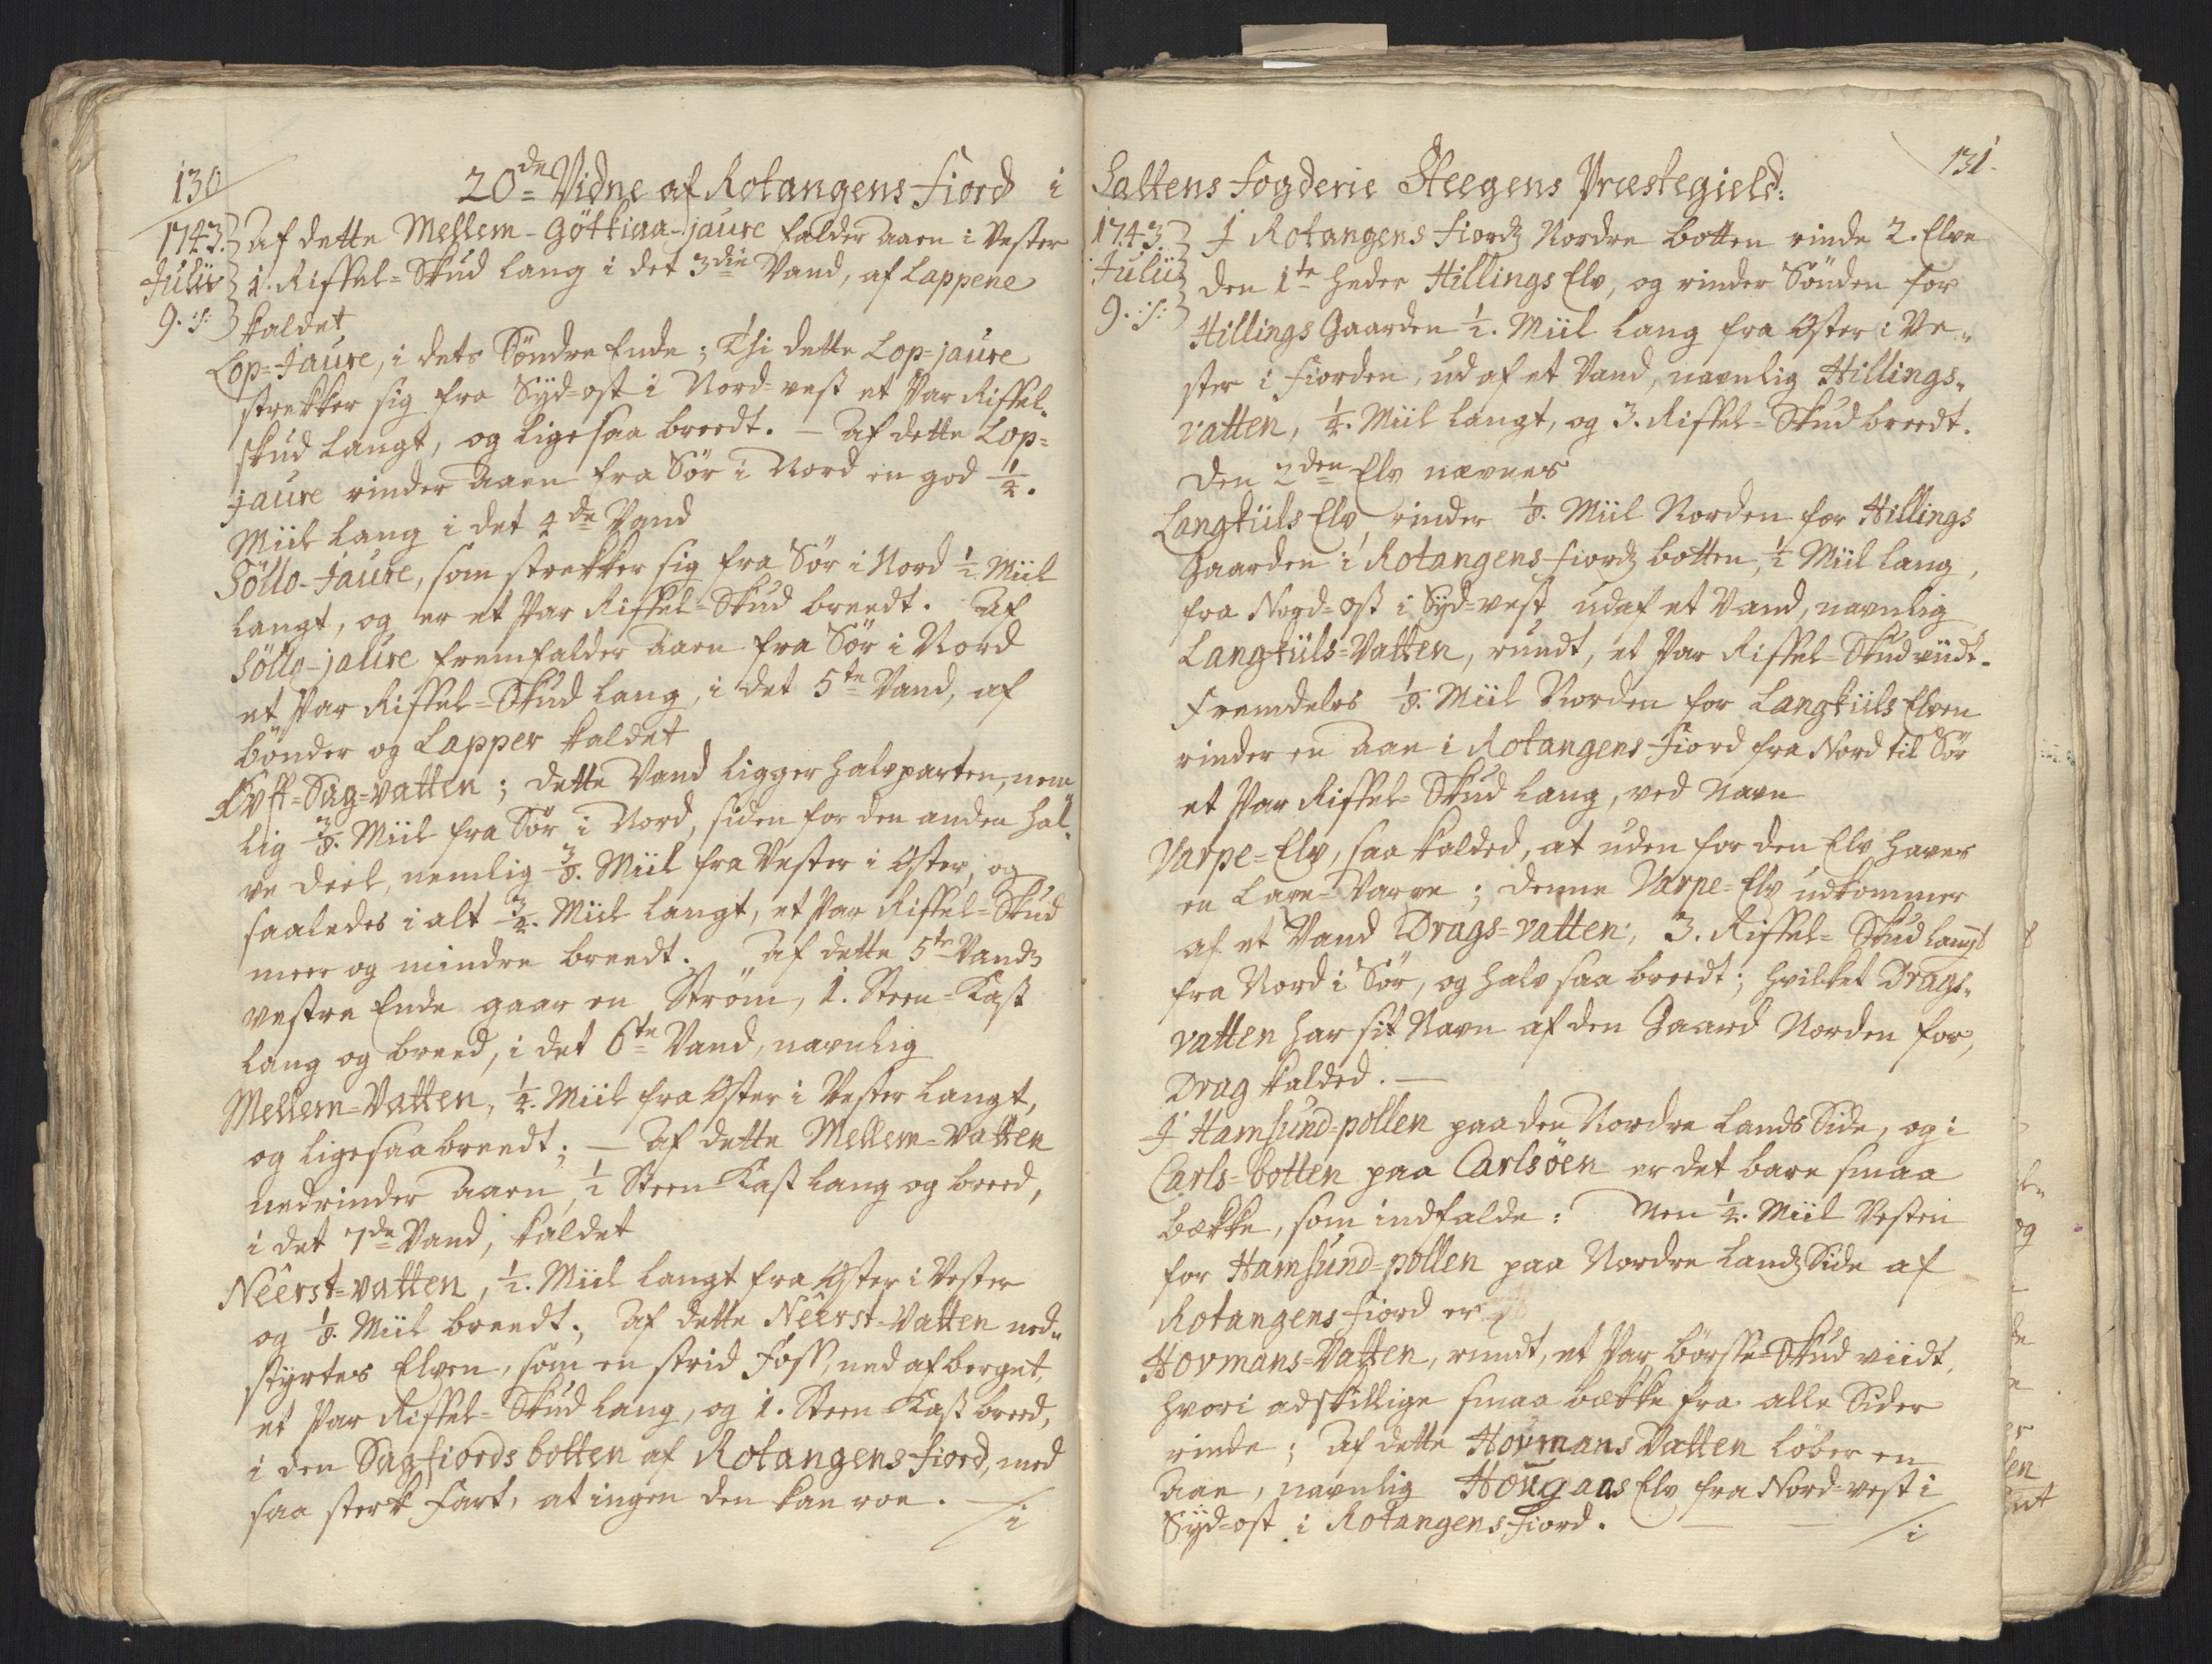 130
20de Vidne af Rotangens Fiord i
1743. Af dette Mellem-Göttiaa-jaure falder Aaen i Vester
Julii 1. Riffel-Skud lang i det 3die Vand, af Lappene
9. :/: kaldet
Lop-Jaure, i dets Søndre Ende; Thi dette Lop-jaure
strekker sig fra Syd-ost i Nord-vest et Par Riffel-
skud langt, og ligesaa breedt. — Af dette Lop-
jaure rinder Aaen fra Sør i Nord en god 1/4.
Miil lang i det 4de Vand
Söllo-Jaure, som strekker sig fra Sør i Nord 1/2 Miil
langt, og er et Par Riffel-Skud breedt. Af
Söllo-jaure fremfalder Aaen fra Sør i Nord
et Par Riffel-Skud lang, i det 5te Vand, af
bönder og Lapper kaldet
Øvst-Sag-vatten; dette Vand ligger halvparten, nem
lig 3/8. Miil fra Sør i Nord, siden for den anden hal-
ve Deel, nemlig 3/8. Miil fra Vester i Oster, og
saaledes i alt 3/4. Miil langt, et Par Riffel-Skud
meer og mindre breedt. Af dette 5te Vands
vestre Ende gaar en Strøm, 1. Steen-Kast
lang og breed, i det 6te Vand, navnlig
Mellem-Vatten, 1/4. Miil fra Oster i Vester langt,
og ligesaa breedt; — Af dette Mellem-Vatten
nedrinder Aaen, 1/2 Steen-Kast lang og breed,
i det 7de Vand, kaldet
Nêerst-vatten, 1/2. Miil langt fra Oster i Vester
og 1/8. Miil breedt. Af dette Nêerst-Vatten ned-
styrtes Elven, som en strid Foss, ned af berget,
et Par Riffel-Skud lang, og 1. Steen-Kast breed,
i den Sagfiords botten af Rotangens fiord, med
saa sterk Fart, at ingen den kan roe. —
i
131.
Saltens Fogderie Steegens Præstegield:
1743. I Rotangens Fiords Nordre botten rinde 2. Elve
Julii den 1te heder Hillings Elv, og rinder Sönden for
9. :/: Hillings Gaarden 1/2. Miil lang fra Oster i Ve-
ster i Fiorden, ud af et Vand, navnlig Hillings-
vatten, 1/4. Miil langt, og 3. Riffel-Skud breedt.
Den 2den Elv nævnes
Langkiils Elv, rinder 1/8. Miil Norden for Hillings
Gaarden i Rotangens-fiords botten, 1/2 Miil lang,
fra Nord-ost i Syd-vest, ud af et Vand, navnlig
Langkiils-Vatten, rundt, et Par Riffel-Skud viidt.
Fremdeles 1/8. Miil Norden for Langkiils Elven
rinder en Aae i Rotangens Fiord fra Nord til Sør
et Par Riffel-Skud lang, ved Navn
Varpe-Elv, saa kalded, at uden for den Elv haves
en Laxe-Varpe; denne Varpe-Elv udkommer
af et Vand Drags-vatten, 3. Riffel-Skud langt
fra Nord i Sør, og halv saa breedt; hvilket Drags-
vatten har sit Navn af den Gaard Norden for,
Drag kalded. —
I Hamsund-pollen paa den Nordre Lands Side, og i
Carls-botten paa Carlsöen er det bare smaa
bække, som indfalde: Men 1/4. Miil Vesten
for Hamsund-pollen paa Nordre Lands Side af
Rotangens fiord er
Hovmans-Vatten, rundt, et Par börsse-Skud viidt,
hvori adskillige smaa bække fra alle Sider
rinde; Af dette Hovmans Vatten löber en
Aae, navnlig Hougaas Elv fra Nord-vest i
Syd-ost i Rotangens fiord. —
i